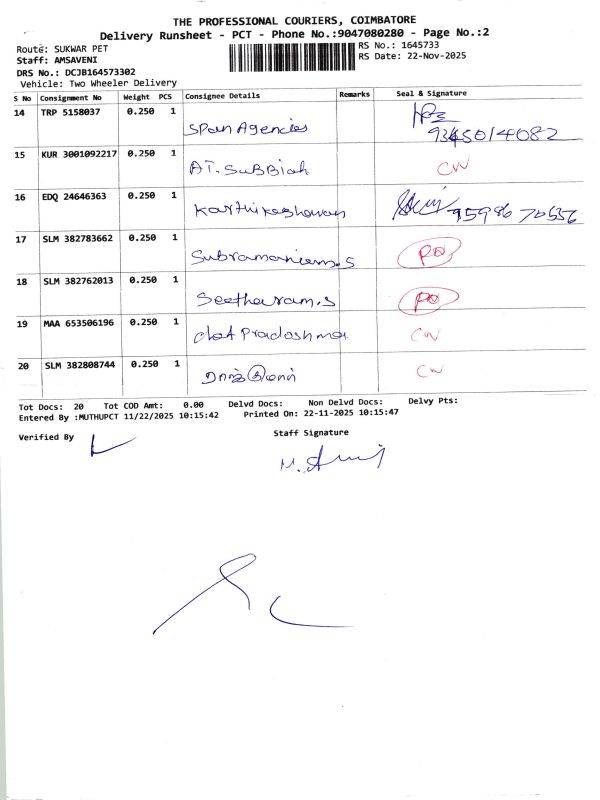 THE PROFESSIONAL COURIERS, COIMBATORE
Delivery Runsheet - PCT - Phone No.:9047080280 - Page No.:2
Route: SUKWAR PET RS No.: 1645733
Staff: AMSAVENI RS Date: 22-Nov-2025
DRS No.: DCJB164573302
Vehicle: Two Wheeler Delivery
S No Consignment No Weight PCS Consignee Details Remarks Seal & Signature
14 TRP 5158037 0.250 1 Span Agencies 9345014082
15 KUR 3001092217 0.250 1 AT. SUBBiah CW
16 EDQ 24646363 0.250 1 Karthikeshwaran
17 SLM 382783662 0.250 1 Subramaniam.S
18 SLM 382762013 0.250 1 Seetharam.S
19 MAA 653506196 0.250 1 CW
20 SLM 382808744 0.250 1 CW
Tot Docs: 20 Tot COD Amt: 0.00 Delvd Docs: Non Delvd Docs: Delvy Pts:
Entered By :MUTHUPCT 11/22/2025 10:15:42 Printed On: 22-11-2025 10:15:47
Verified By
Staff Signature